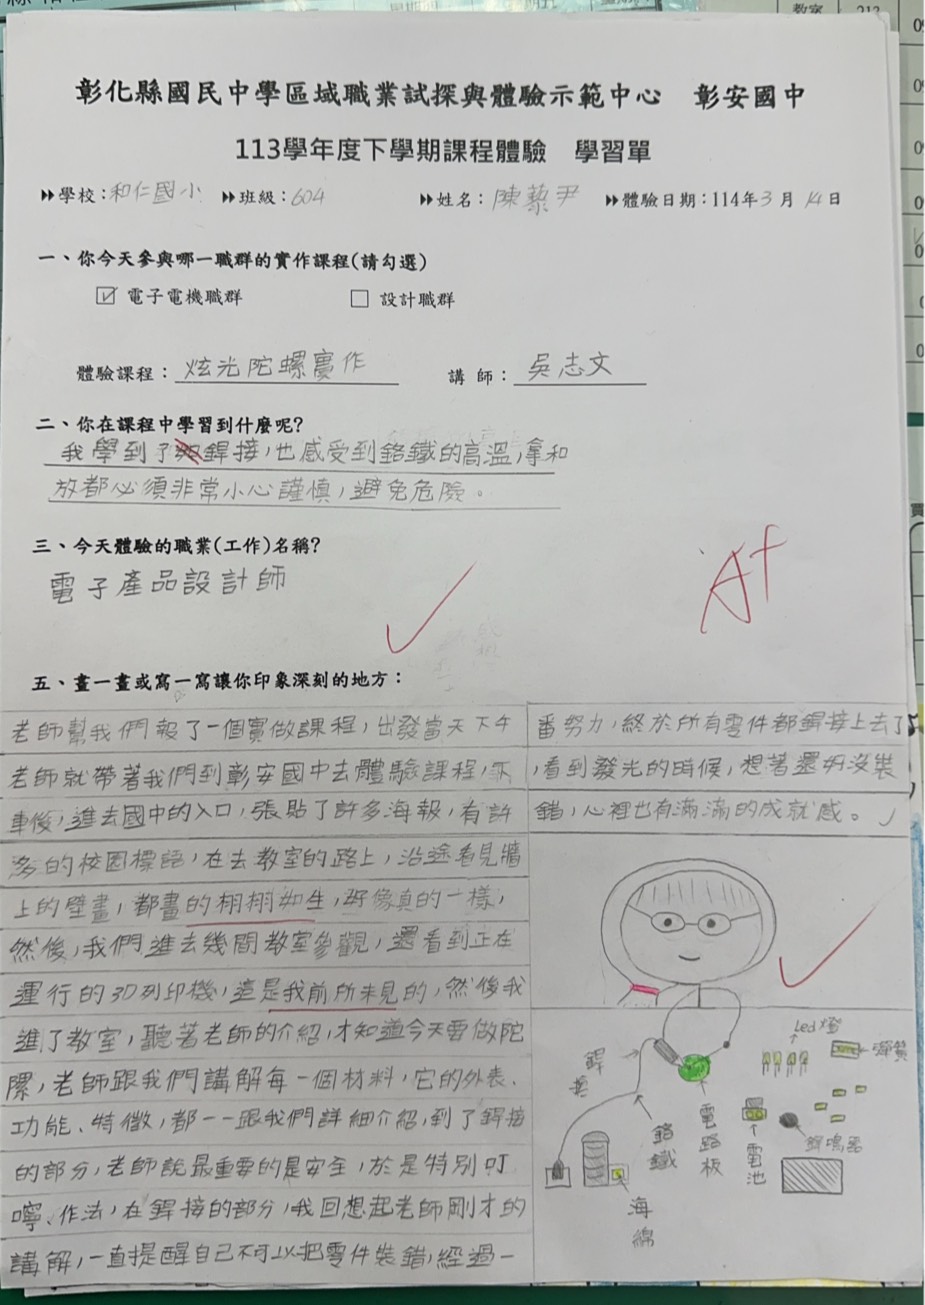 教室 212
彰化縣國民中學區域職業試探與體驗示範中心 彰安國中
113學年度下學期課程體驗 學習單
學校：和仁國小 班級：604 姓名：陳藝尹 體驗日期：114年3月14日
一、你今天參與哪一職群的實作課程(請勾選)
☑ 電子電機職群 □ 設計職群
體驗課程：炫光陀螺實作 講師：吳志文
二、你在課程中學習到什麼呢?
我學到了銲接，也感受到鉻鐵的高溫，拿和
放都必須非常小心謹慎，避免危險。
三、今天體驗的職業(工作)名稱?
電子產品設計師
A+
五、畫一畫或寫一寫讓你印象深刻的地方：
老師幫我們報了一個實做課程，出發當天下午
老師就帶著我們到彰安國中去體驗課程，下
車後，進去國中的入口，張貼了許多海報，有許
多的校園標語，在去教室的路上，沿途看見牆
上的壁畫，都畫的栩栩如生，好像真的一樣，
然後，我們進去幾間教室參觀，還看到正在
運行的3D列印機，這是我前所未見的，然後我
進了教室，聽著老師的介紹，才知道今天要做陀
螺，老師跟我們講解每一個材料，它的外表、
功能、特徵，都一一跟我們詳細介紹，到了銲接
的部分，老師說最重要的是安全，於是特別叮
嚀、作法，在銲接的部分，我回想起老師剛才的
講解，一直提醒自己不可以把零件裝錯，經過一
番努力，終於所有零件都銲接上去了
，看到發光的時候，想著還好沒裝
錯，心裡也有滿滿的成就感。
Led燈
彈簧
鉻鐵
電路板
電池
蜂鳴器
海綿